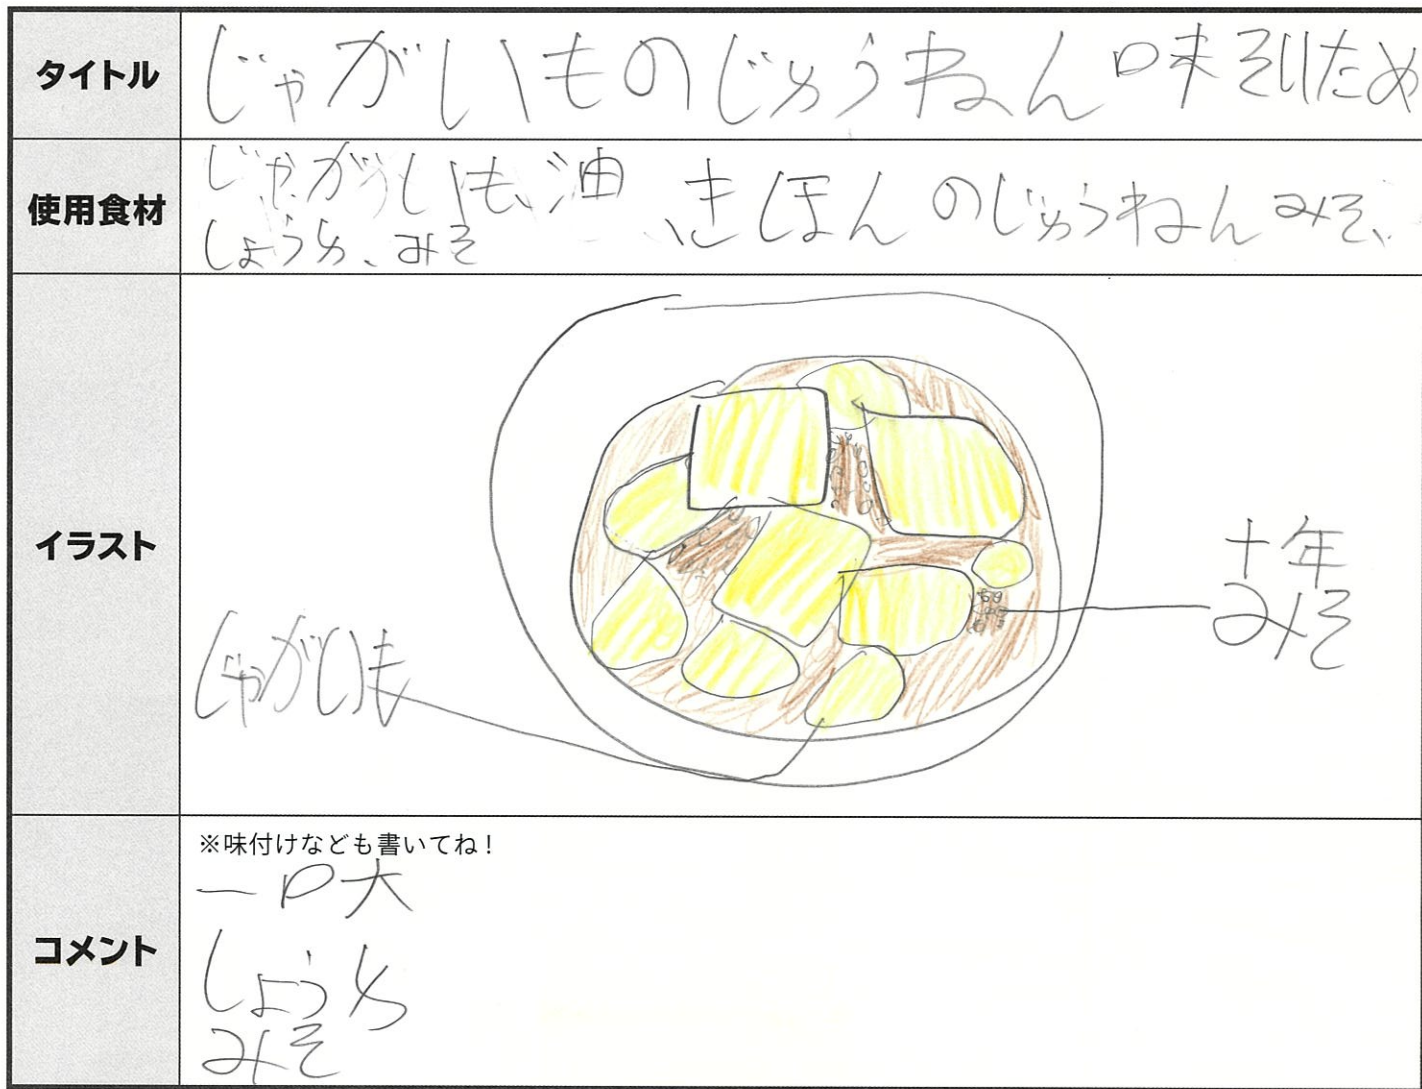 タイトル
じゃがいものじゅうねん味そいため
使用食材
じゃがいも、油、きほんのじゅうねんみそ、
しょうゆ、みそ
イラスト
じゃがいも
十年
みそ
コメント
※味付けなども書いてね！
一口大
しょうゆ
みそ